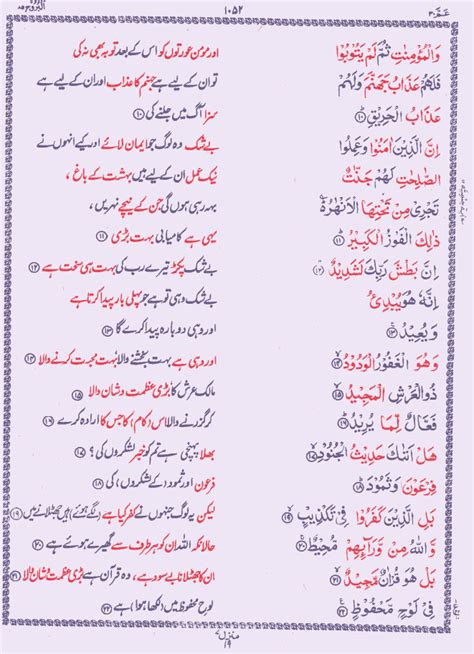 عَمَّ ۳۰
۱۰۵۲
البروج ۸۵
وَالْمُؤْمِنٰتِ ثُمَّ لَمْ يَتُوْبُوْا
اور مؤمن عورتوں کو اس کے بعد توبہ بھی نہ کی
فَلَهُمْ عَذَابُ جَهَنَّمَ وَلَهُمْ
تو ان کے لیے ہے جہنم کا عذاب اور ان کے لیے ہے
عَذَابُ الْحَرِيْقِ ۱۰
سزا آگ میں جلنے کی ۱۰
اِنَّ الَّذِيْنَ اٰمَنُوْا وَعَمِلُوا
بے شک وہ لوگ جو ایمان لائے اور کیے انہوں نے
الصّٰلِحٰتِ لَهُمْ جَنّٰتٌ
نیک عمل ان کے لیے ہیں بہشت کے باغ ،
تَجْرِيْ مِنْ تَحْتِهَا الْاَنْهٰرُ ؕ
بہہ رہی ہوں گی جن کے نیچے نہریں ،
ذٰلِكَ الْفَوْزُ الْكَبِيْرُ ۱۱
یہی ہے کامیابی بہت بڑی ۱۱
اِنَّ بَطْشَ رَبِّكَ لَشَدِيْدٌ ۱۲
بے شک پکڑ تیرے رب کی بہت ہی سخت ہے ۱۲
اِنَّهٗ هُوَ يُبْدِئُ
بے شک وہی تو ہے جو پہلی بار پیدا کرتا ہے
وَيُعِيْدُ ۱۳
اور وہی دوبارہ پیدا کرے گا ۱۳
وَهُوَ الْغَفُوْرُ الْوَدُوْدُ ۱۴
اور وہی ہے بہت بخشنے والا بہت محبت کرنے والا ۱۴
ذُو الْعَرْشِ الْمَجِيْدُ ۱۵
مالک عرش کا بڑی عظمت و شان والا ۱۵
فَعَّالٌ لِّمَا يُرِيْدُ ۱۶
کر گزرنے والا اس (کام) کا جس کا ارادہ کرے ۱۶
هَلْ اَتٰىكَ حَدِيْثُ الْجُنُوْدِ ۱۷
بھلا پہنچی ہے تم کو خبر لشکروں کی ؟ ۱۷
فِرْعَوْنَ وَثَمُوْدَ ۱۸
فرعون اور ثمود (کے لشکروں) کی ۱۸
بَلِ الَّذِيْنَ كَفَرُوْا فِيْ تَكْذِيْبٍ ۱۹
لیکن یہ لوگ جنہوں نے کفر کیا ہے (لگے ہوئے) ہیں جھٹلانے میں ۱۹
وَّاللّٰهُ مِنْ وَّرَآىِٕهِمْ مُّحِيْطٌ ۲۰
حالانکہ اللہ ان کو ہر طرف سے گھیرے ہوئے ہے ۲۰
بَلْ هُوَ قُرْاٰنٌ مَّجِيْدٌ ۲۱
ان کا جھٹلانا بے سود ہے، وہ قرآن ہے بڑی عظمت و شان والا ۲۱
فِيْ لَوْحٍ مَّحْفُوْظٍ ۲۲
لوحِ محفوظ میں (لکھا ہوا) ہے ۲۲
منزل ۷
۱۹